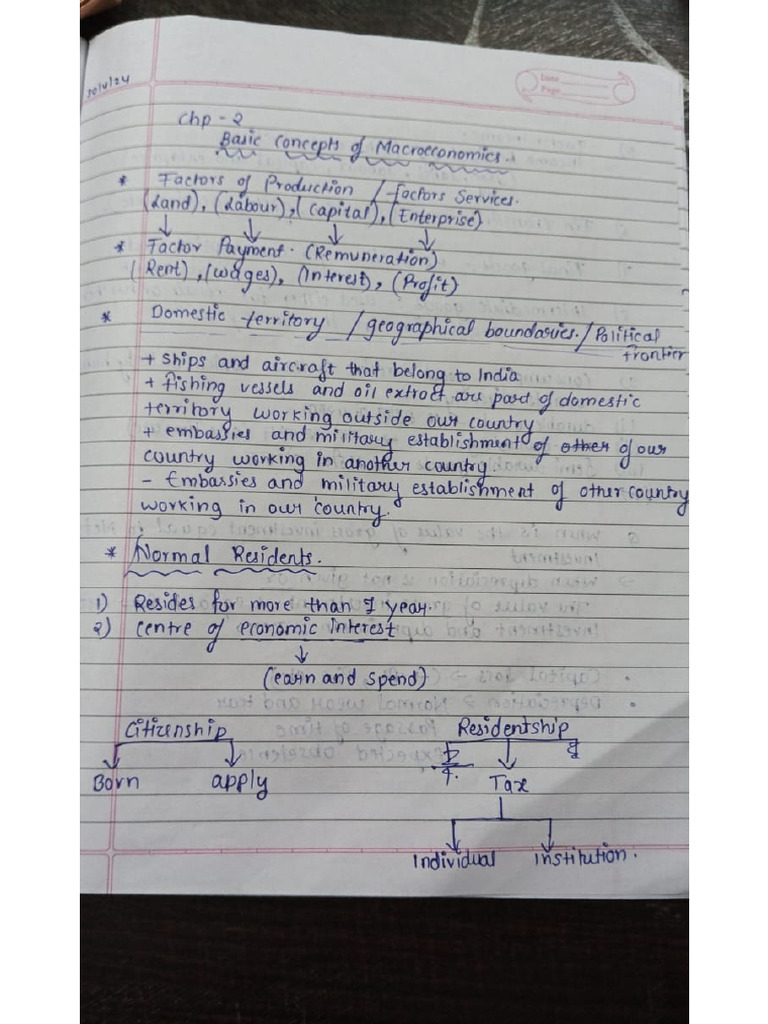 30/4/24
Date
Page
Chp - 2
Basic Concepts of Macroeconomics.
* Factors of Production / factors Services.
(Land), (Labour), (Capital), (Enterprise)
* Factor Payment. (Remuneration)
(Rent), (wages), (Interest), (Profit)
* Domestic territory / geographical boundaries. / Political
frontier
+ Ships and aircraft that belong to India
+ fishing vessels and oil extract are part of domestic
territory working outside our country
+ embassies and military establishment of other of our
country working in another country.
- Embassies and military establishment of other country
working in our country.
* Normal Residents.
1) Resides for more than 1 year.
2) centre of economic interest
(earn and spend)
Citizenship Residentship
Born apply Tax
Individual Institution.